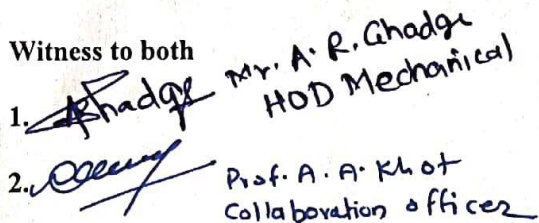 Witness to both
1. Ghadge Mr. A. R. Ghadge
HOD Mechanical
2.
Prof. A. A. Khot
Collaboration officer